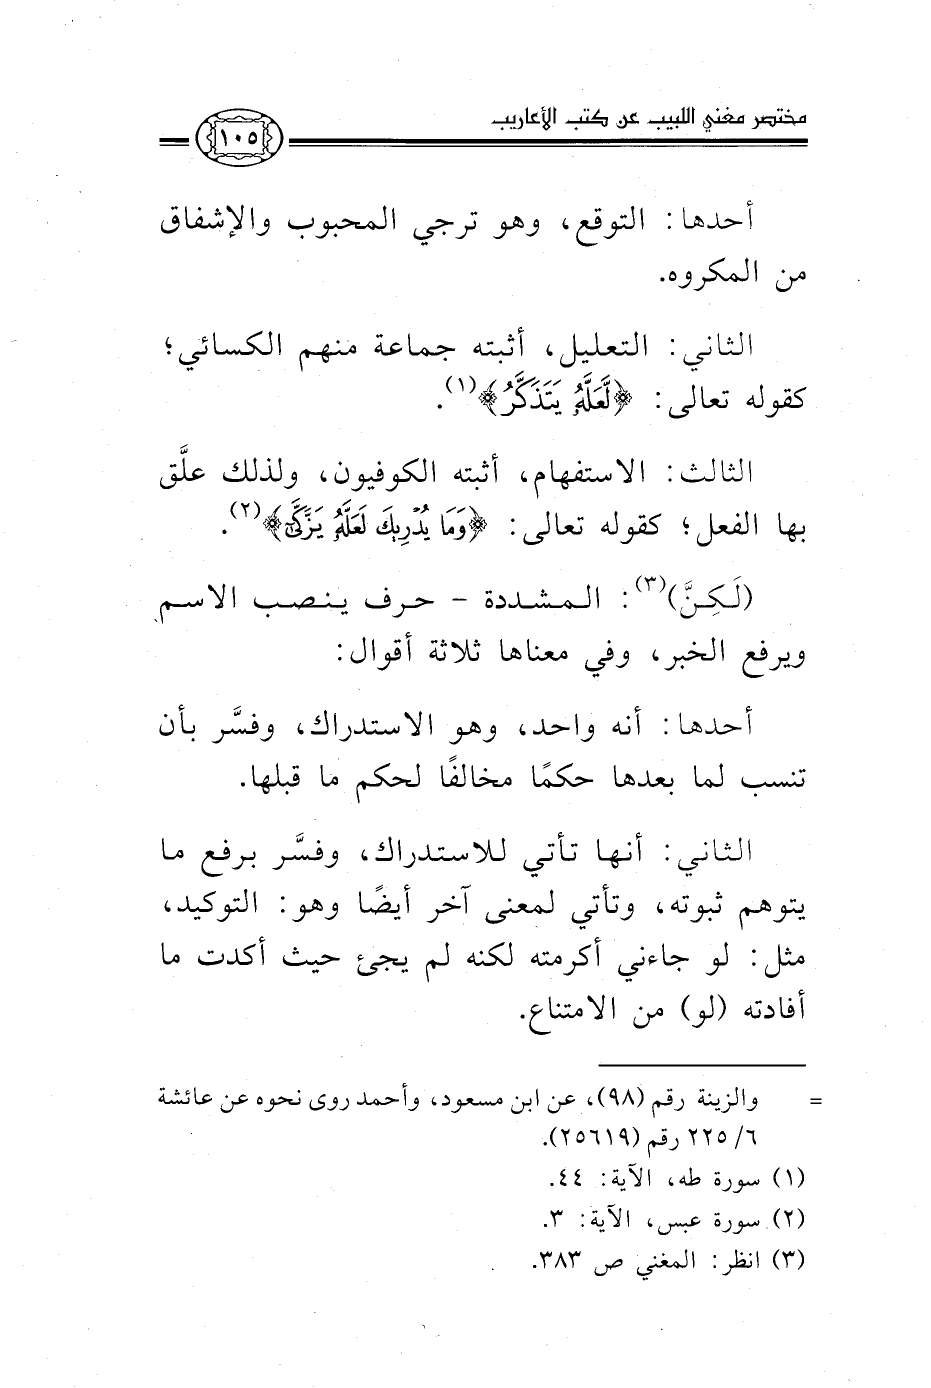 مختصر مغني اللبيب عن كتب الأعاريب
١٠٥
أحدها: التوقع، وهو ترجي المحبوب والإشفاق
من المكروه.
الثاني: التعليل، أثبته جماعة منهم الكسائي؛
كقوله تعالى: ﴿لَّعَلَّهُ يَتَذَكَّرُ﴾(١).
الثالث: الاستفهام، أثبته الكوفيون، ولذلك علَّق
بها الفعل؛ كقوله تعالى: ﴿وَمَا يُدْرِيكَ لَعَلَّهُ يَزَّكَّى﴾(٢).
(لَكِنَّ)(٣): المشددة - حرف ينصب الاسم
ويرفع الخبر، وفي معناها ثلاثة أقوال:
أحدها: أنه واحد، وهو الاستدراك، وفسَّر بأن
تنسب لما بعدها حكمًا مخالفًا لحكم ما قبلها.
الثاني: أنها تأتي للاستدراك، وفسَّر برفع ما
يتوهم ثبوته، وتأتي لمعنى آخر أيضًا وهو: التوكيد،
مثل: لو جاءني أكرمته لكنه لم يجئ حيث أكدت ما
أفادته (لو) من الامتناع.
= والزينة رقم (٩٨)، عن ابن مسعود، وأحمد روى نحوه عن عائشة
٦/ ٢٢٥ رقم (٢٥٦١٩).
(١) سورة طه، الآية: ٤٤.
(٢) سورة عبس، الآية: ٣.
(٣) انظر: المغني ص ٣٨٣.